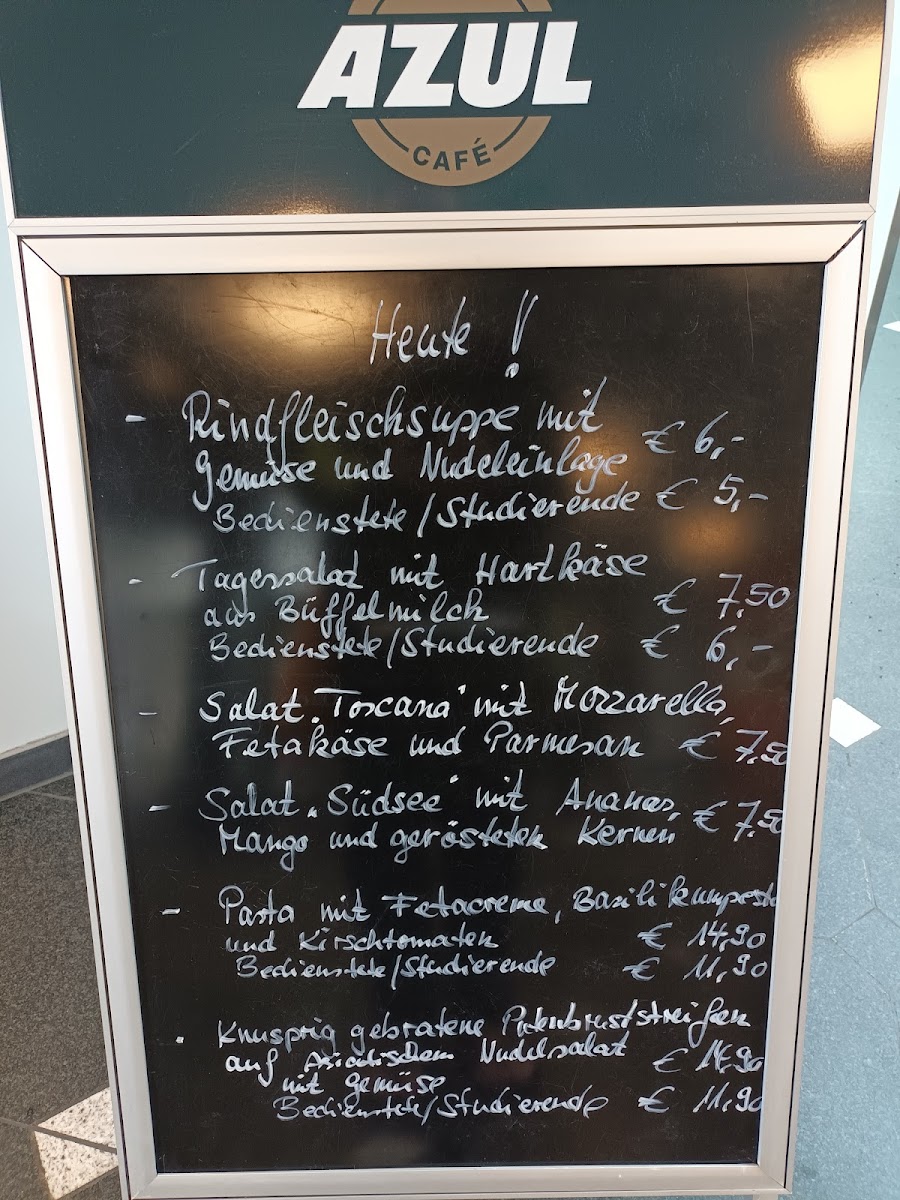 AZUL
CAFÉ
Heute !
- Rindfleischsuppe mit
Gemüse und Nudeleinlage € 6,-
Bedienstete/Studierende € 5,-
- Tagessalat mit Hartkäse
aus Büffelmilch € 7,50
Bedienstete/Studierende € 6,-
- Salat „Toscana" mit Mozzarella,
Fetakäse und Parmesan € 7,50
- Salat „Südsee" mit Ananas,
Mango und gerösteten Kernen € 7,50
- Pasta mit Fetacreme, Basilikumpesto
und Kirschtomaten € 14,90
Bedienstete/Studierende € 11,90
- Knusprig gebratene Putenbruststreifen
auf Asiatischem Nudelsalat € 14,90
mit Gemüse
Bedienstete/Studierende € 11,90